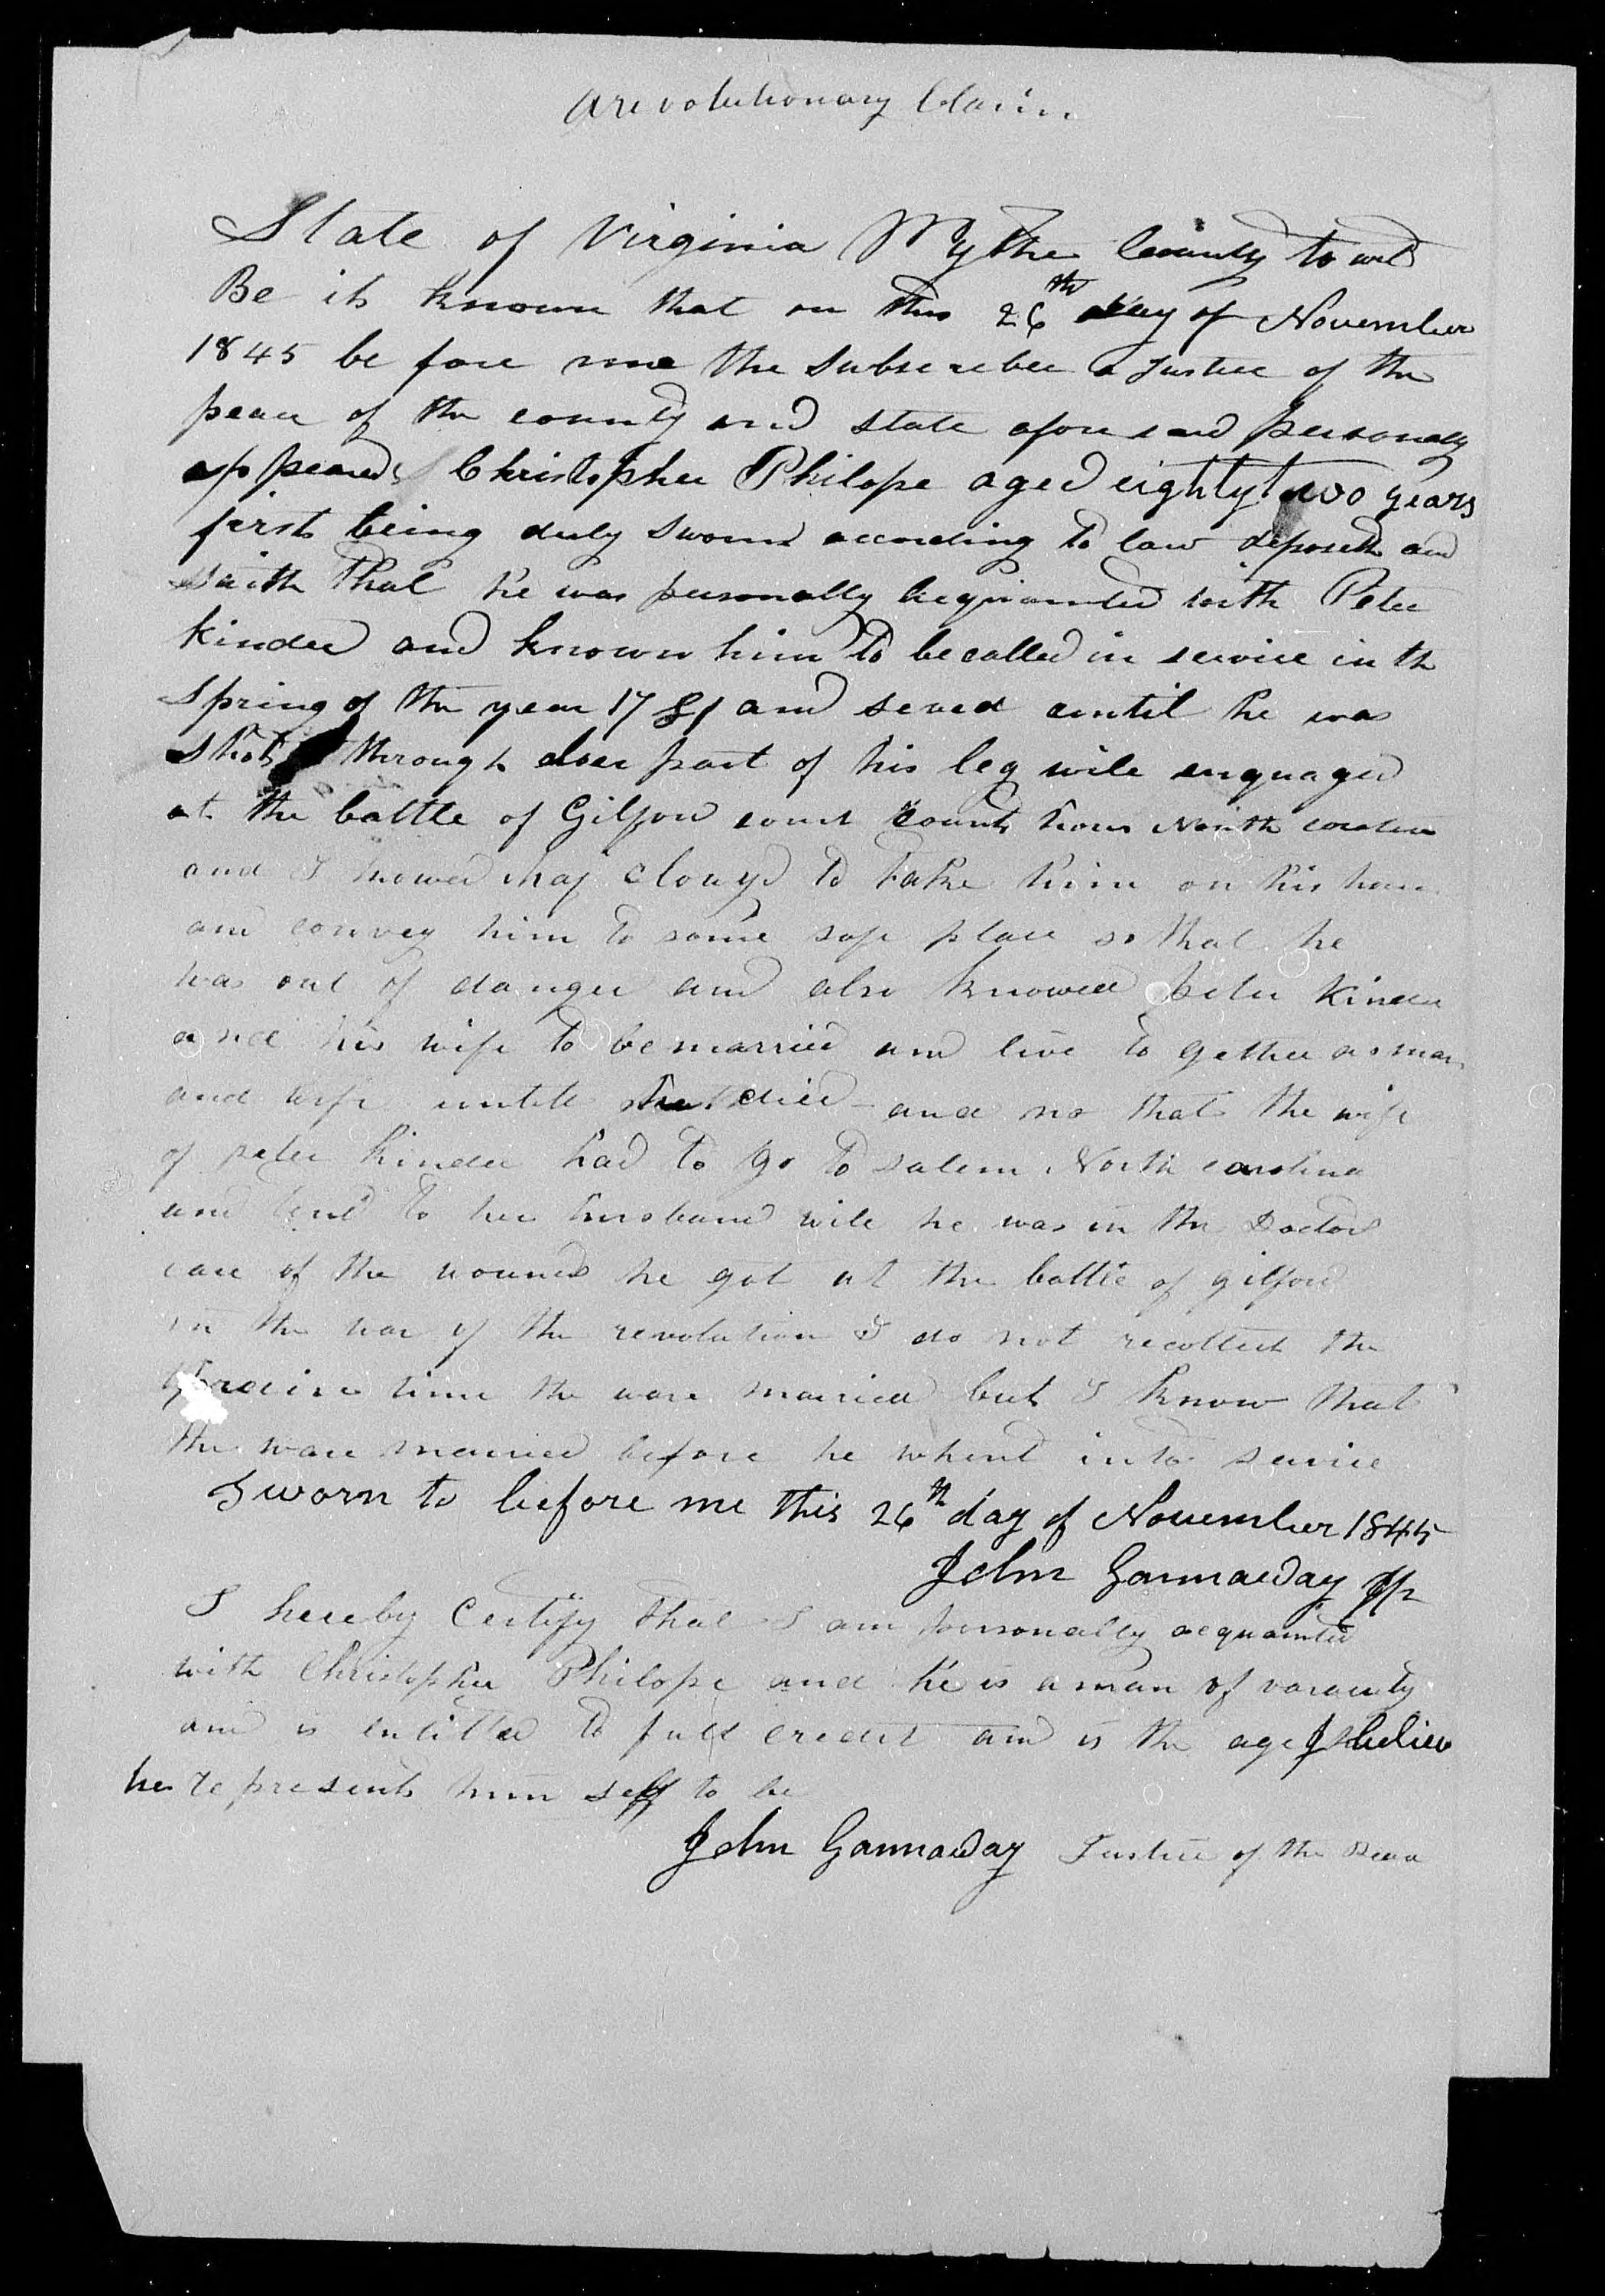 a revolutionary Claim
State of Virginia Wythe County to wit
Be it known that on this 26th day of November
1845 be fore me the Subscriber a Justice of the
peace of the county and state afore said personally
appeared Christopher Philope aged eighty two years
first being duly sworn according to law deposeth and
saith that he was personally acquainted with Peter
Kinder and known him to be called in service in the
Spring of the year 1781 and served until he was
shot through part of his leg wile enguaged
at the battle of Gilford court house North
and I knowed Maj Clouyd to take him on his horse
and convey him to some safe place so that he
was out of danger and also knowed peter Kinder
and his wife to be married and live to gether as man
and wife untill he died and no that the wife
of peter Kinder had to go to Salem North carolina
and tend to her husband wile he was in the Doctors
care of the wounds he got at the battle of gilford
in the war of the revolution I do not recollect the
time the ware married but I know that
the ware married before he whent into service
Sworn to before me this 26th day of November 1845
John Gannaway JP
I hereby Certify that I am personally acquainted
with Christopher Philope and he is a man of varacity
and is entitled to full credit and is the age I believe
he represents him self to be
John Gannaway Justice of the Peace